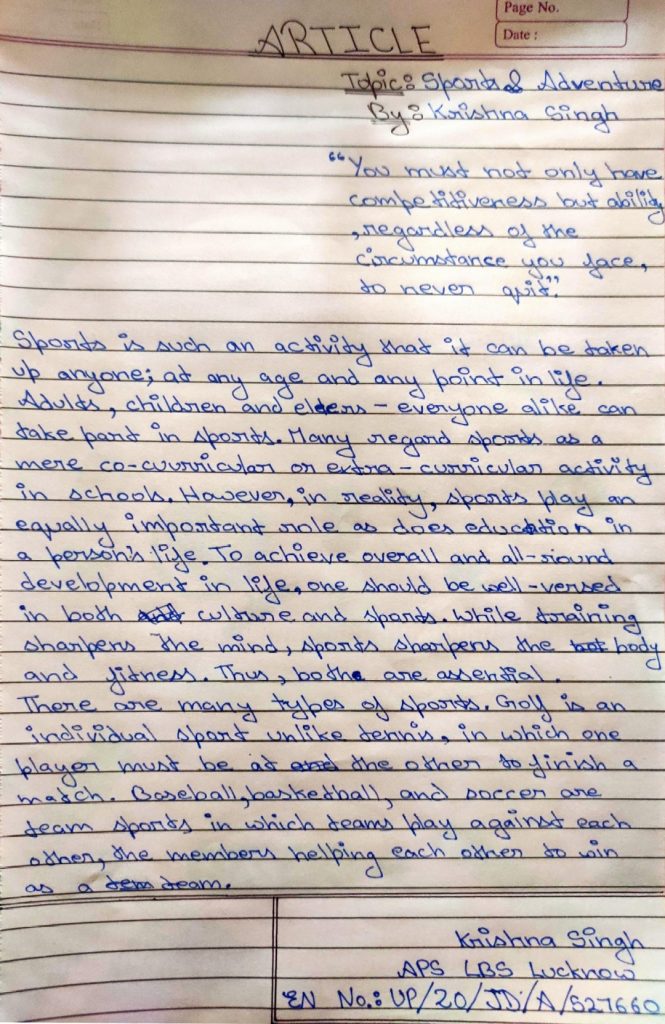 Page No.
Date :
ARTICLE
Topic: Sports & Adventure
By: Krishna Singh
"You must not only have
competitiveness but ability
,regardless of the
circumstance you face,
to never quit".
Sports is such an activity that it can be taken
up anyone; at any age and any point in life.
Adults, children and elders - everyone alike can
take part in sports. Many regard sports as a
mere co-curricular or extra-curricular activity
in schools. However, in reality, sports play an
equally important role as does education in
a person's life. To achieve overall and all-round
development in life, one should be well-versed
in both culture and sports. While training
sharpens the mind, sports sharpens the body
and fitness. Thus, bothe are assential.
There are many types of sports. Golf is an
individual sport unlike tennis, in which one
player must be at the other to finish a
match. Baseball, basketball, and soccer are
team sports in which teams play against each
other, the members helping each other to win
as a team.
Krishna Singh
APS LBS Lucknow
EN No.: UP/20/JD/A/527660